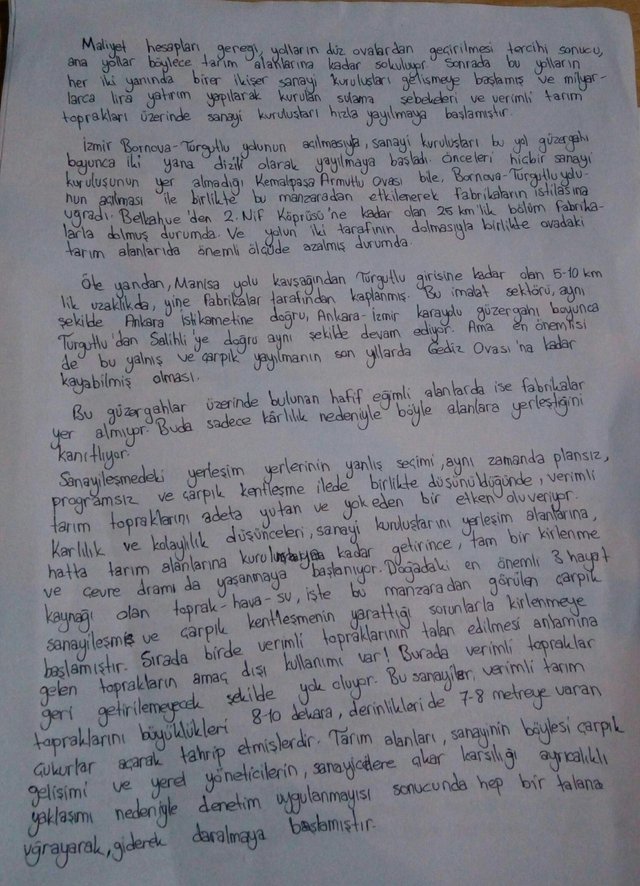 Maliyet hesapları gereği, yolların düz ovalardan geçirilmesi tercihi sonucu,
ana yollar böylece tarım alanlarına kadar sokuluyor. Sonrada bu yolların
her iki yanında birer ikişer sanayi kuruluşları gelişmeye başlamış ve milyar-
larca lira yatırım yapılarak kurulan sulama şebekeleri ve verimli tarım
toprakları üzerinde sanayi kuruluşları hızla yayılmaya başlamıştır.
İzmir Bornova-Turgutlu yolunun açılmasıyla, sanayi kuruluşları bu yol güzergahı
boyunca iki yana dizili olarak yayılmaya başladı. Önceleri hiçbir sanayi
kuruluşunun yer almadığı Kemalpaşa Armutlu Ovası bile, Bornova-Turgutlu yolu-
nun açılması ile birlikte bu manzaradan etkilenerek fabrikaların istilasına
uğradı. Belkahve'den 2. Nif Köprüsü'ne kadar olan 25 km'lik bölüm fabrika-
larla dolmuş durumda. Ve yolun iki tarafının dolmasıyla birlikte ovadaki
tarım alanlarıda önemli ölçüde azalmış durumda.
Öte yandan, Manisa yolu kavşağından Turgutlu girişine kadar olan 5-10 km
lik uzaklıkda, yine fabrikalar tarafından kaplanmış. Bu imalat sektörü, aynı
şekilde Ankara istikametine doğru, Ankara-İzmir karayolu güzergahı boyunca
Turgutlu'dan Salihli'ye doğru aynı şekilde devam ediyor. Ama en önemlisi
de bu yalnış ve çarpık yayılmanın son yllarda Gediz Ovası'na kadar
kayabilmiş olması.
Bu güzergahlar üzerinde bulunan hafif eğimli alanlarda ise fabrikalar
yer almıyor. Buda sadece kârlılık nedeniyle böyle alanlara yerleştiğini
kanıtlıyor.
Sanayileşmedeki yerleşim yerlerinin yanlış seçimi, aynı zamanda plansız,
programsız ve çarpık kentleşme ilede birlikte düşünüldüğünde, verimli
tarım topraklarını adeta yutan ve yok eden bir etken oluveriyor.
Karlılık ve kolaylılık düşünceleri, sanayi kuruluşlarını yerleşim alanlarına,
hatta tarım alanlarına kadar getirince, tam bir kirlenme
ve çevre dramı da yaşanmaya başlanıyor. Doğadaki en önemli 3 hayat
kaynağı olan toprak-hava-su, işte bu manzaradan görülen çarpık
sanayileşme ve çarpık kentleşmenin yarattığı sorunlarla kirlenmeye
başlamıştır. Sırada birde verimli topraklarının talan edilmesi anlamına
gelen toprakların amaç dışı kullanımı var! Burada verimli topraklar
geri getirilemeyecek şekilde yok oluyor. Bu sanayiler, verimli tarım
topraklarını büyüklükleri 8-10 dekara, derinlikleri de 7-8 metreye varan
çukurlar açarak tahrip etmişlerdir. Tarım alanları, sanayinin böylesi çarpık
gelişimi ve yerel yöneticilerin, sanayicilere çıkar karşılığı ayrıcalıklı
yaklaşımı nedeniyle denetim uygulanmayışı sonucunda hep bir talana
uğrayarak, giderek daralmaya başlamıştır.